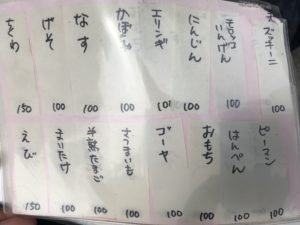 ズッキーニ
100
モロッコ
いんげん
100
にんじん
100
エリンギ
100
かぼちゃ
100
なす
100
げそ
100
ちくわ
150
ピーマン
100
はんぺん
100
おもち
100
ゴーヤ
100
さつまいも
100
半熟たまご
100
まいたけ
100
えび
150